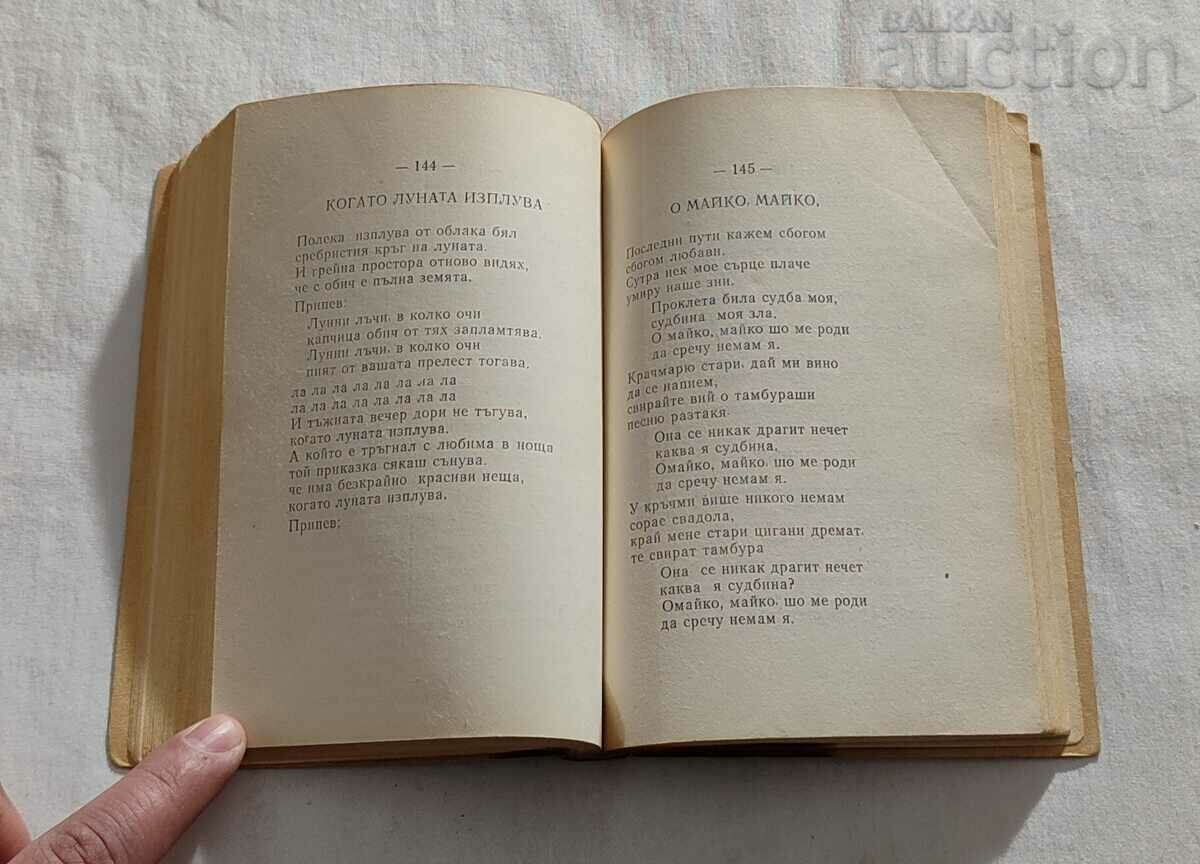 BALKAN
auction
— 144 —
КОГАТО ЛУНАТА ИЗПЛУВА
Полека изплува от облака бял
сребристия кръг на луната.
И грейна простора отново видях,
че с обич е пълна земята.
Припев:
Лунни лъчи, в колко очи
капчица обич от тях запламтява.
Лунни лъчи, в колко очи
пият от вашата прелест тогава.
ла ла ла ла ла ла ла ла
ла ла ла ла ла ла ла ла
И тъжната вечер дори не тъгува,
когато луната изплува.
А който е тръгнал с любима в ноща
той приказка сякаш сънува.
че има безкрайно красиви неща,
когато луната изплува.
Припев:
— 145 —
О МАЙКО, МАЙКО,
Последни пути кажем сбогом
сбогом любави.
Сутра нек мое сърце плаче
умиру наше зни.
Проклета била судба моя,
судбина моя зла.
О майко, майко шо ме роди
да сречу немам я.
Крачмарю стари, дай ми вино
да се напием,
свирайте вий о тамбураши
песню разтакя.
Она се никак драгит нечет
каква я судбина.
Омайко, майко, шо ме роди
да сречу немам я.
У кръчми више никого немам
сорае свадола,
край мене стари цигани дремат,
те свират тамбура
Она се никак драгит нечет
каква я судбина?
Омайко, майко, шо ме роди
да сречу немам я.